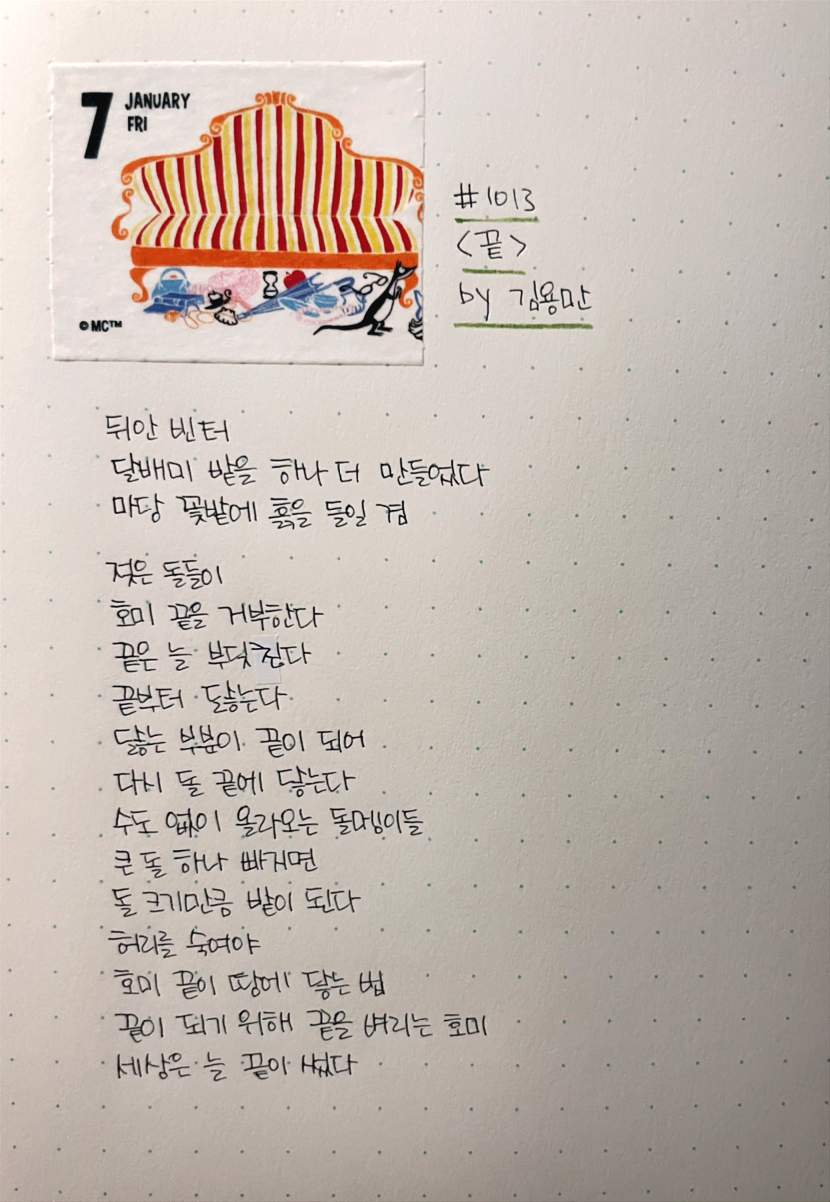 7
JANUARY
FRI
©MC™
#1013
<끝>
by 김용만
뒤안 빈터
달배미 밭을 하나 더 만들었다
마당 꽃밭에 흙을 들일 겸
젖은 돌들이
호미 끝을 거부한다
끝은 늘 부딪친다
끝부터 닳는다
닳는 부분이 끝이 되어
다시 돌 끝에 닿는다
수도 없이 올라오는 돌멩이들
큰 돌 하나 빠지면
돌 크기만큼 밭이 된다
허리를 숙여야
호미 끝이 땅에 닿는 법
끝이 되기 위해 끝을 벼리는 호미
세상은 늘 끝이 썼다